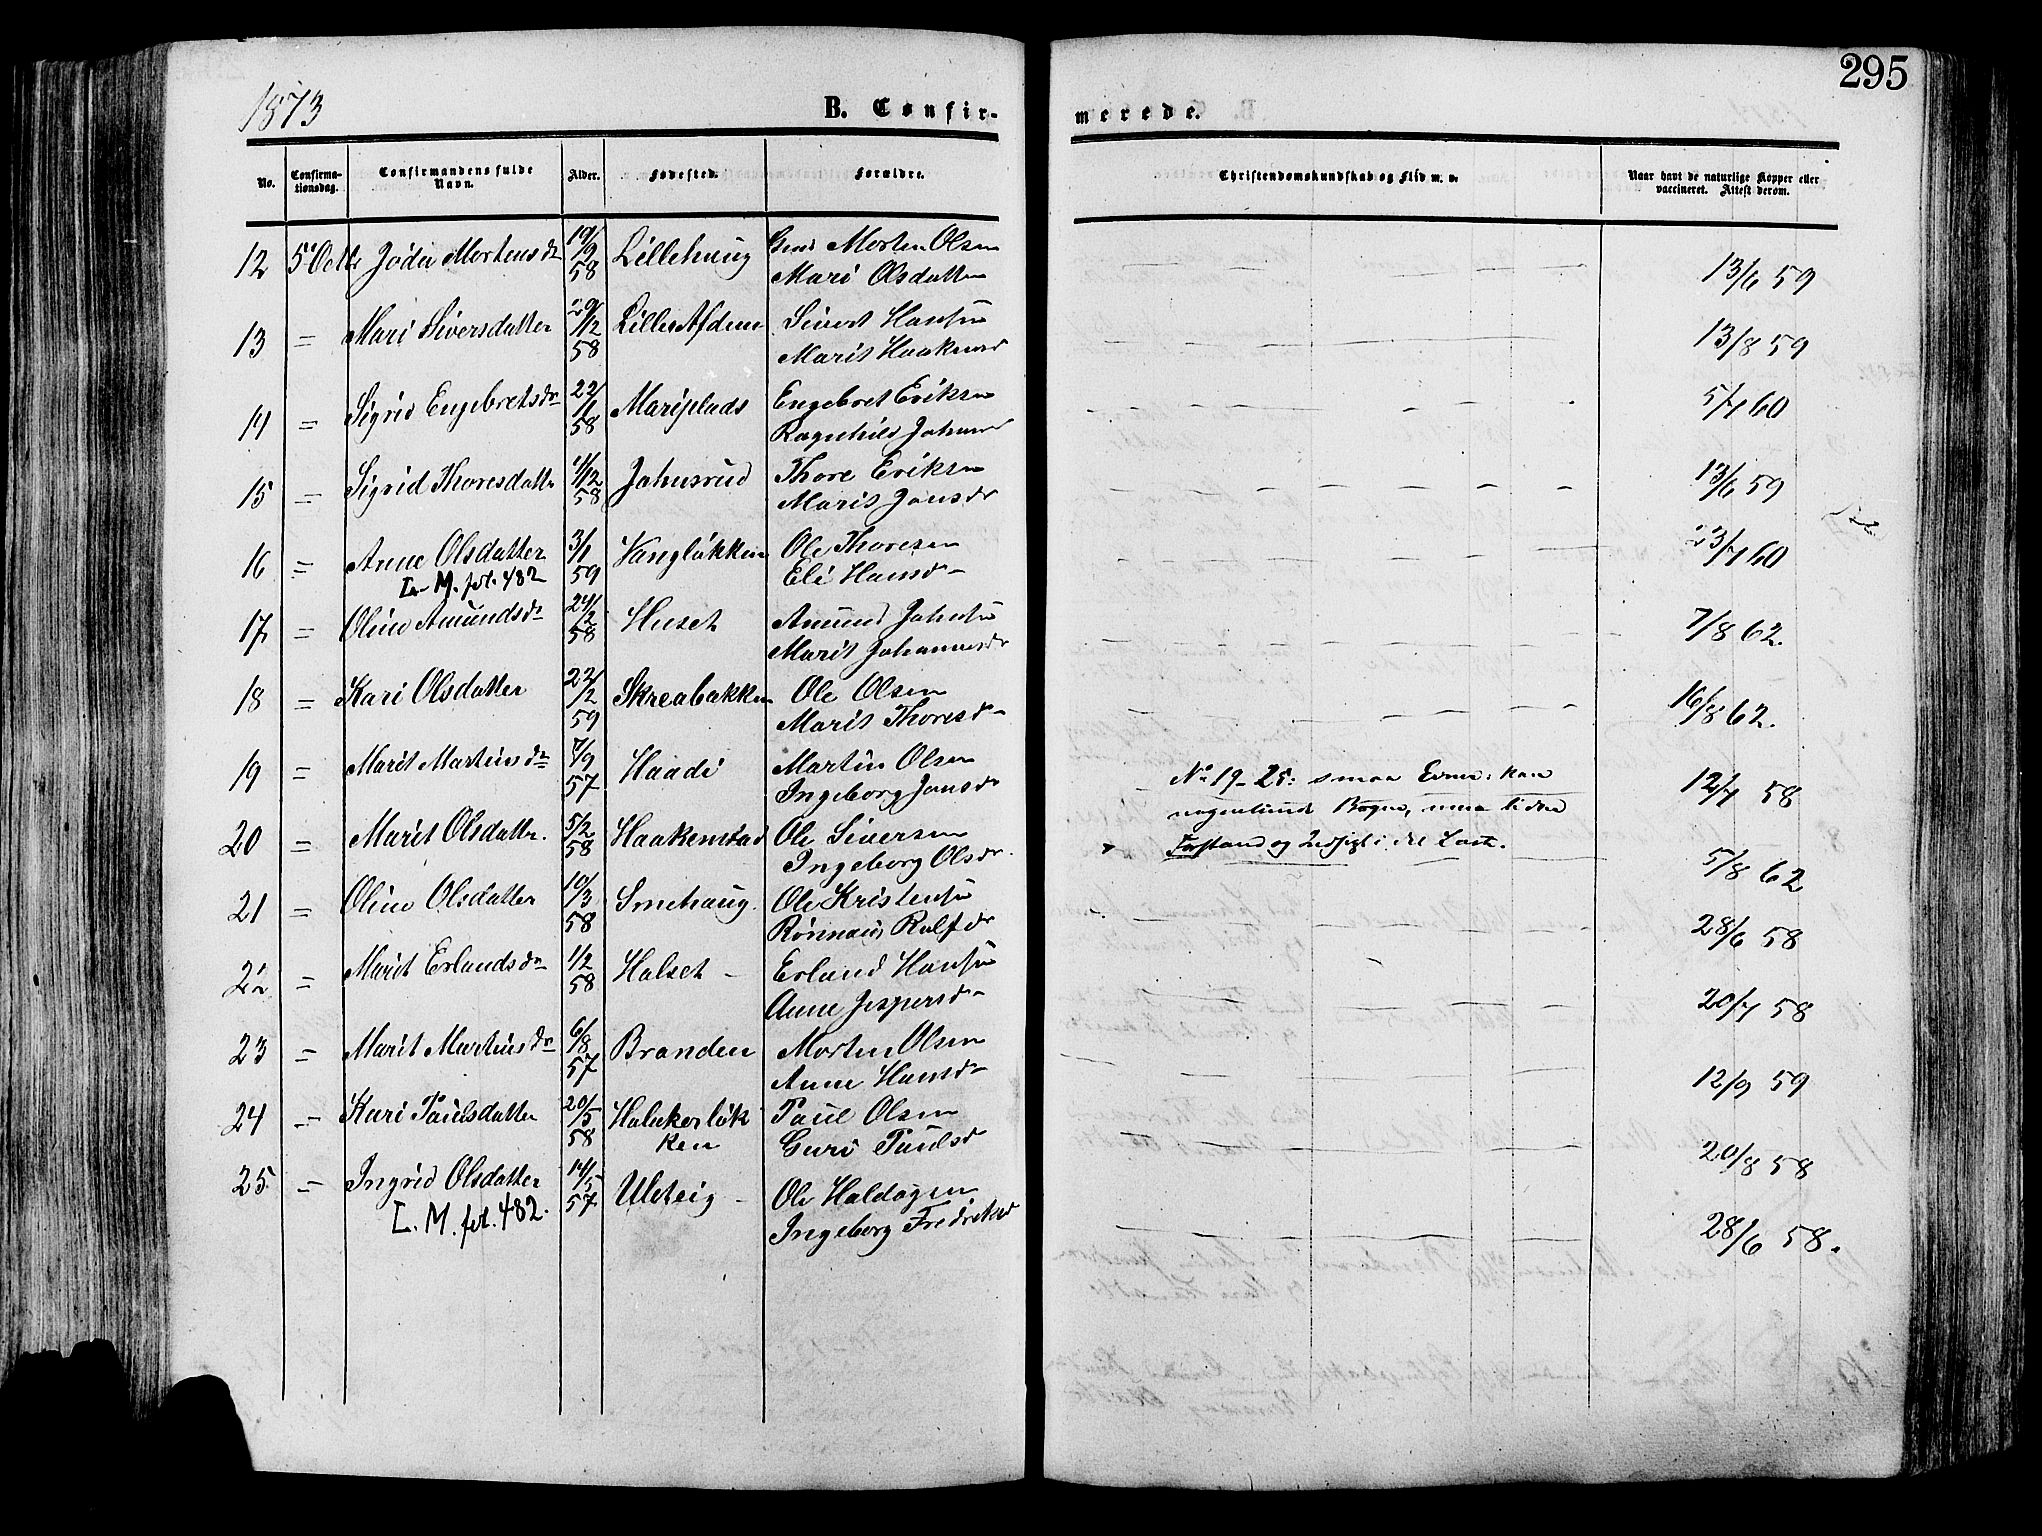 295
1873
B. Confir-
merede.
No.
Confirma-
tionsdag.
Confirmandens fulde
Navn.
Alder.
Fødested.
Forældre.
Christendomskundskab og Flid m. v.
Naar havt de naturlige Kopper eller
vaccineret. Attest derom.
12 5 Octbr Mortensdr 19/9 58 Lillehaug Morten Olsen
Mari Olsdatter
13/6 59
13 = Mari Siversdatter 29/12 58 Sivert Hansen
Marit Haakensd
13/8 59
14 = Sigrid Engebretsdr 22/1 58 Mariplads Engebret Eriksen
Ragnhild Johnsd
5/7 60
15 = Sigrid Thoresdatter 11/12 58 Johnsrud Thore Eriksen
Marit Jonsdr
13/6 59
16 = Anne Olsdatter 3/1 59 Vangløkken Ole Thoresen
L. M. fol. 482 Eli Hansd
23/7 60
17 = Oline Amundsdr 24/2 58 Huset Amund Johnsen
Marit Johannesdr
7/8 62.
18 = Kari Olsdatter 22/2 59 Skreabakken Ole Olsen
Marit Thoresd
16/8 62.
19 = Marit Martinsdr 7/9 57 Haadi Martin Olsen
Ingeborg Jonsd
No 19-25: smaa Evner: kan
nogenlunde Bogen, men liden
Forstand og Indsigt i det Læste.
12/7 58
20 = Marit Olsdatter. 5/2 58 Haakenstad Ole Siversen
Ingeborg Olsdr.
5/8 62
21 = Oline Olsdatter 10/3 58 Smehaug. Ole Kristensen
Rønnaug Rolfsdr
28/6 58
22 = Marit Erlandsdr 1/2 58 Halset - Erland Hansen
Anne Jespersd
20/7 58
23 = Marit Martinsdr 6/8 57 Branden Morten Olsen
Anne Hansd
12/9 59
24 = Kari Paulsdatter 20/5 58 Paul Olsen
ken Guri Paulsd
20/8 58
25 = Ingrid Olsdatter 14/5 57 Ulteig - Ole Haldogen
L. M. fol. 482. Ingeborg Fredriksd
28/6 58.